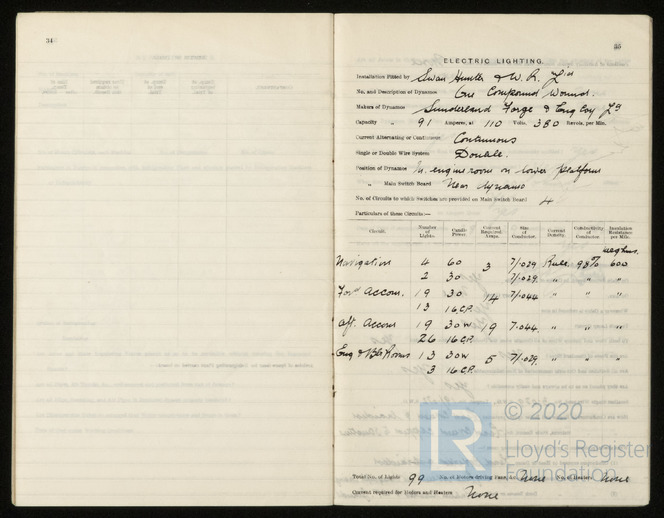 34
35
ELECTRIC LIGHTING.
Installation Fitted by Swan Hunter & W. R. Ltd
No. and Description of Dynamos One Compound Wound.
Makers of Dynamos Sunderland Forge & Eng Coy Ld
Capacity „ 91 Amperes, at 110 Volts, 380 Revols. per Min.
Current Alternating or Continuous Continuous
Single or Double Wire System Double.
Position of Dynamos In engine room on lower platform
„ Main Switch Board Near dynamo
No. of Circuits to which Switches are provided on Main Switch Board 4
Particulars of these Circuits:—
Circuit. Number of Lights. Candle Power. Current Required Amps. Size of Conductor. Current Density. Conductivity of Conductor. Insulation Resistance per Mile.
megohms.
Navigation 4 60 3 7/.029. Rule. 98% 600
2 30 7/.029. „ „ „
For'd Accom. 19 30 14 7/.044 „ „ „
13 16 C.P.
Aft. Accom 19 30 W 19 7/.044. „ „ „
26 16 C.P.
Eng & Blr Rooms 13 30W 5 7/.029. „ „ „
3 16 C.P.
© 2020
LR
Lloyd's Register
Foundation
Total No. of Lights 99 No. of Motors driving Fans, &c. None No. of Heaters None
Current required for Motors and Heaters None